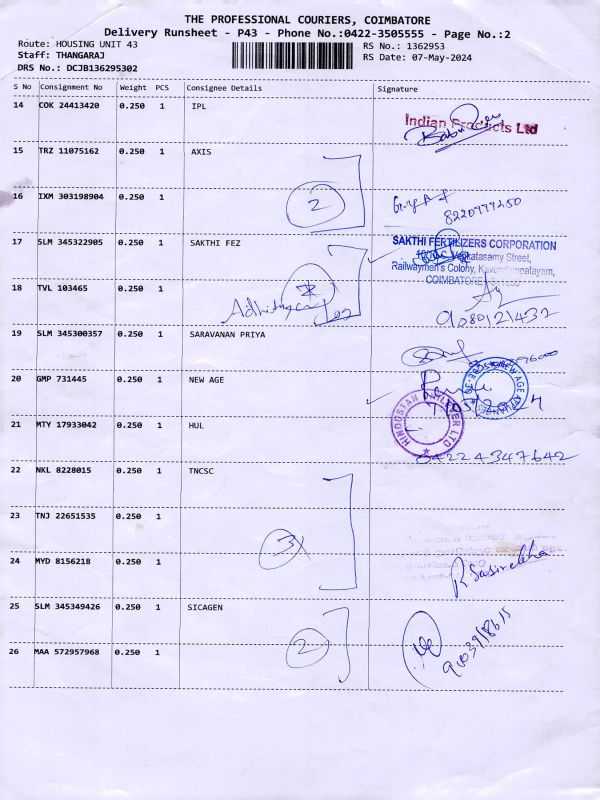 THE PROFESSIONAL COURIERS, COIMBATORE
Delivery Runsheet - P43 - Phone No.:0422-3505555 - Page No.:2
Route: HOUSING UNIT 43
RS No.: 1362953
Staff: THANGARAJ
RS Date: 07-May-2024
DRS No.: DCJB136295302
S No Consignment No Weight PCS Consignee Details Signature
14 COK 24413420 0.250 1 IPL
Indian Products Ltd
Babu
15 TRZ 11075162 0.250 1 AXIS
16 IXM 303198904 0.250 1
2
8220777250
17 SLM 345322905 0.250 1 SAKTHI FEZ
SAKTHI FERTILIZERS CORPORATION
Venkatasamy Street,
Railwaymen's Colony, Kavundampalayam,
COIMBATORE
18 TVL 103465 0.250 1
9080121432
19 SLM 345300357 0.250 1 SARAVANAN PRIYA
20 GMP 731445 0.250 1 NEW AGE
NEW AGE
21 MTY 17933042 0.250 1 HUL
HINDUSTAN UNILEVER LTD
04224347642
22 NKL 8228015 0.250 1 TNCSC
23 TNJ 22651535 0.250 1
3
24 MYD 8156218 0.250 1
R Sasirekha
25 SLM 345349426 0.250 1 SICAGEN
2
26 MAA 572957968 0.250 1